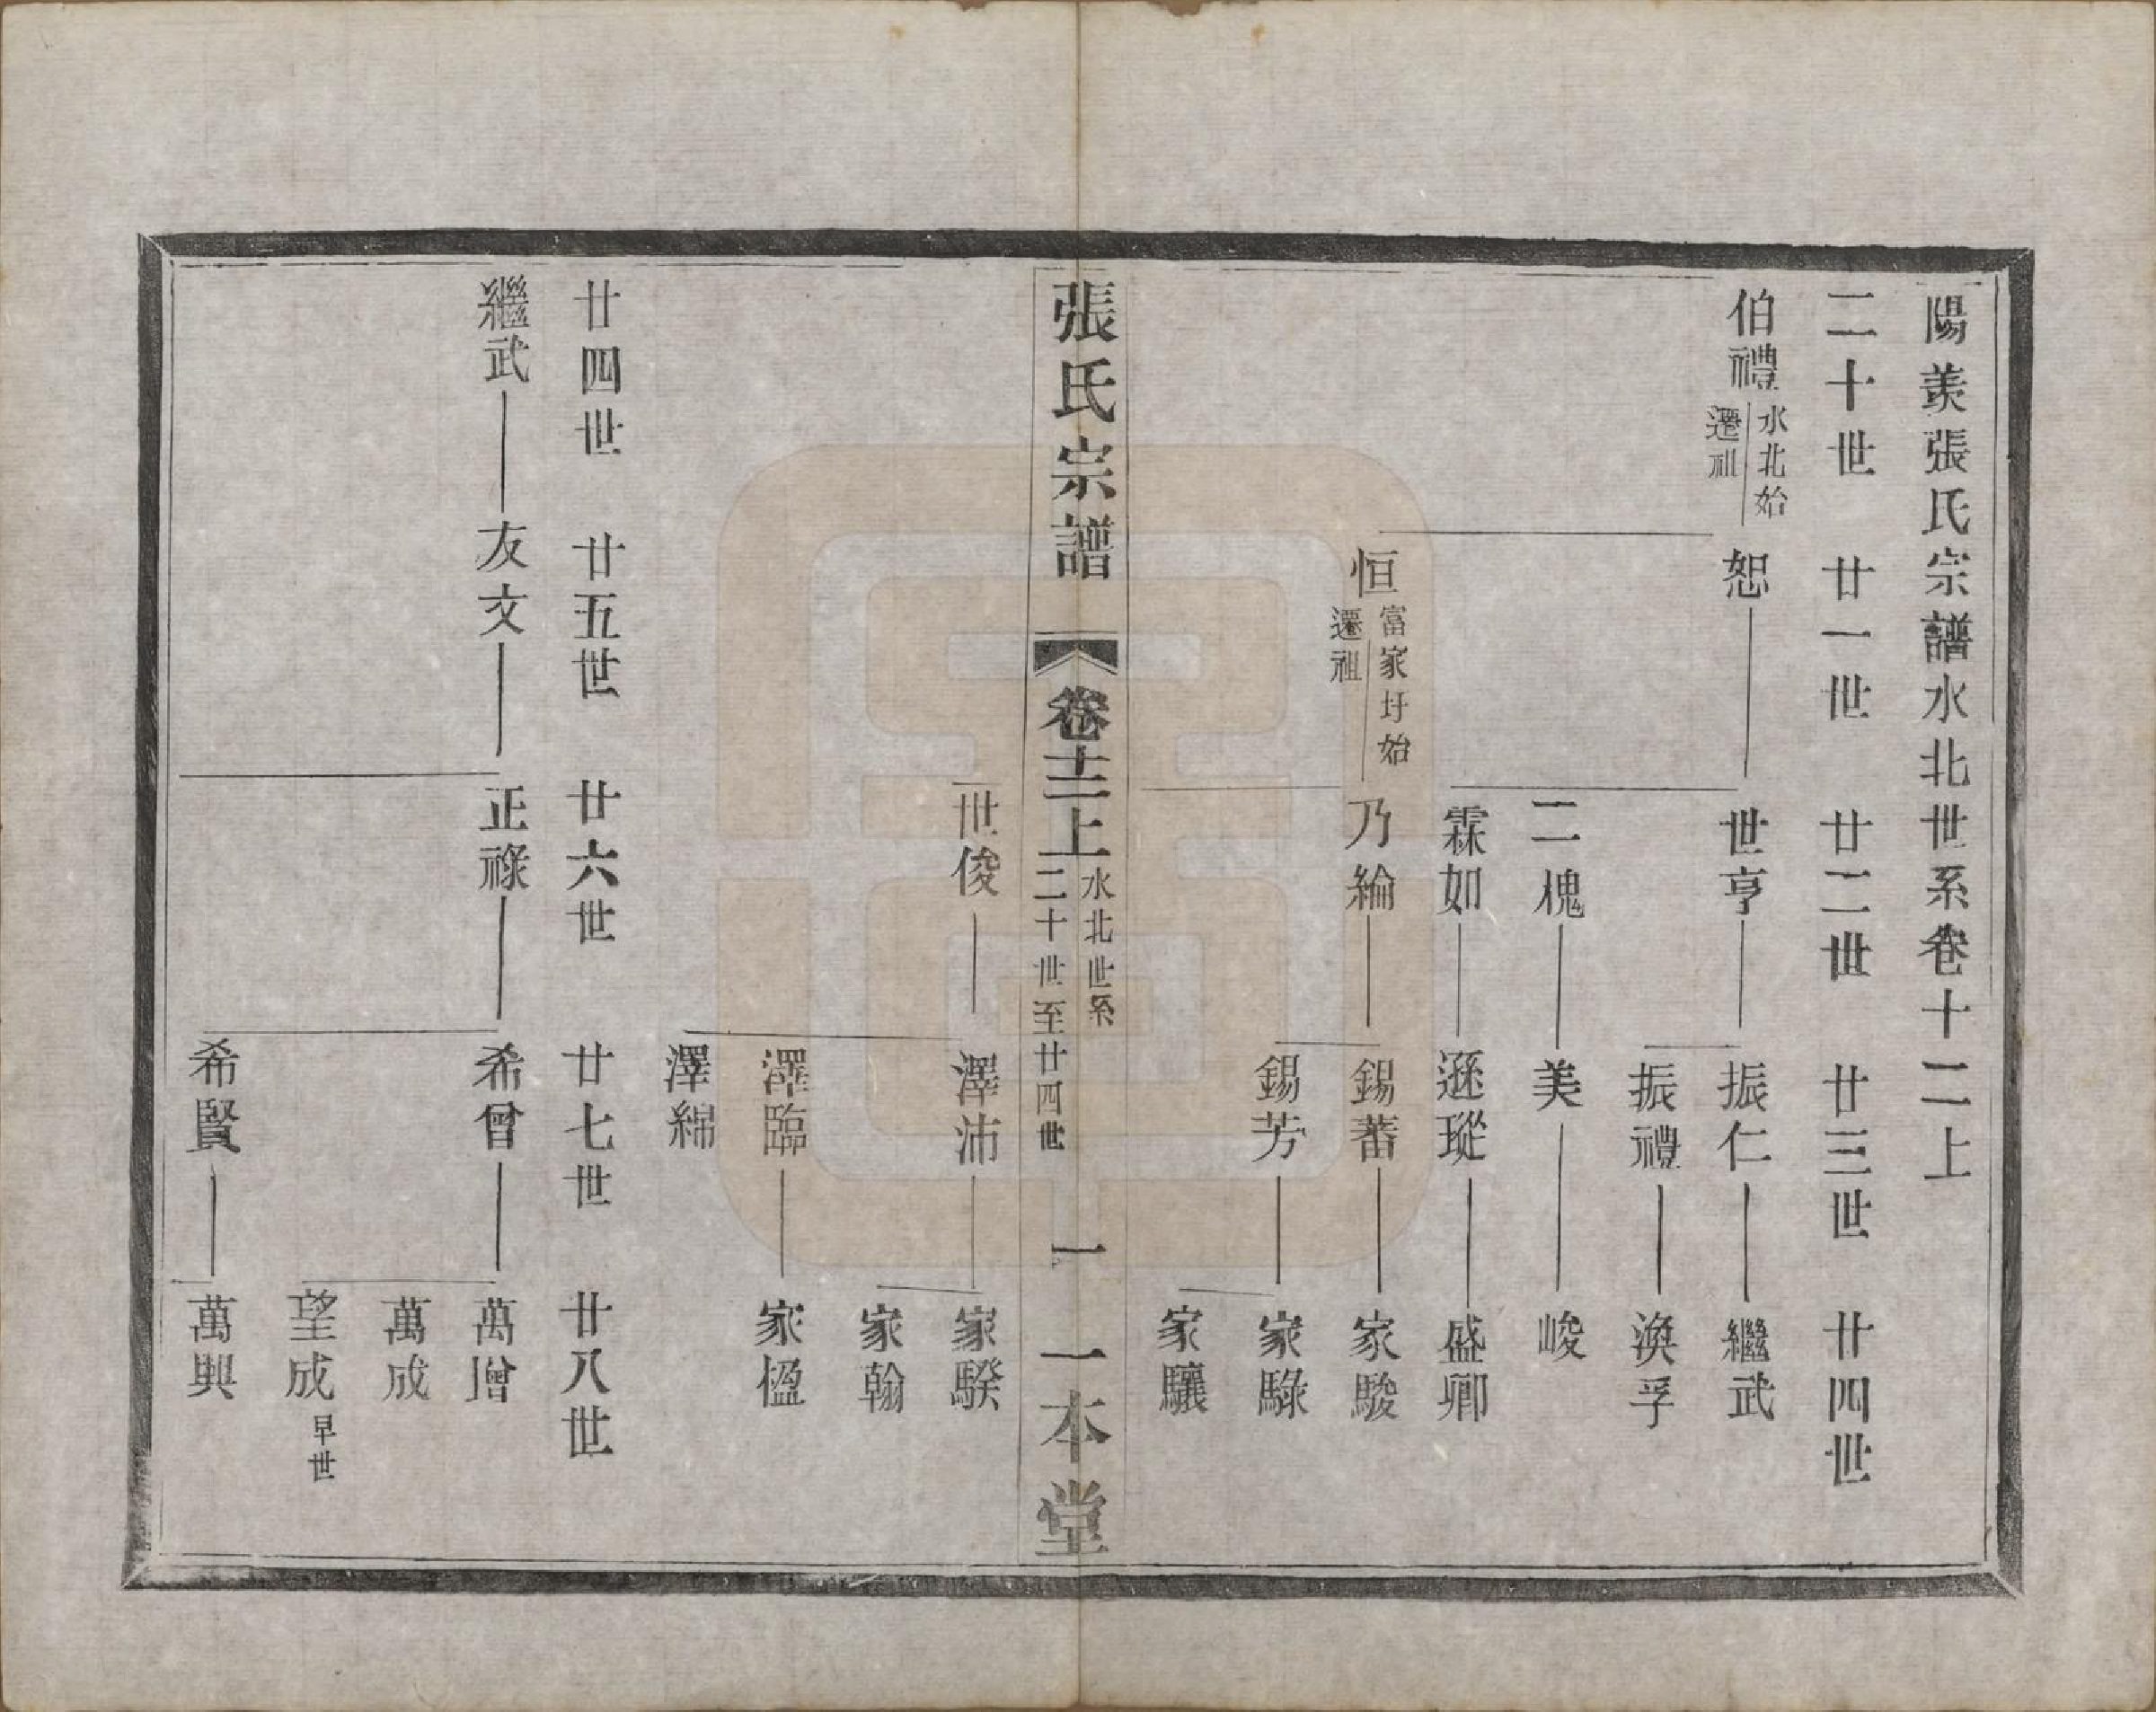 陽羨張氏宗譜水北世系卷十二上
二十世 廿一世 廿二世 廿三世 廿四世
伯禮 水北始遷祖 恕 世亨 振仁 繼武
振禮 渙孚
二槐 美 峻
霖如 遜瑽 盛卿
恒 富家圩始遷祖 乃綸 錫蕃 家駿
錫芳 家騄
家驤
張氏宗譜 卷十二上 水北世系 二十世至廿四世 一 一本堂
世俊 澤沛 家騤
家翰
澤臨 家楹
澤綿
廿四世 廿五世 廿六世 廿七世 廿八世
繼武 友文 正祿 希曾 萬增
萬成
望成 早世
希賢 萬興